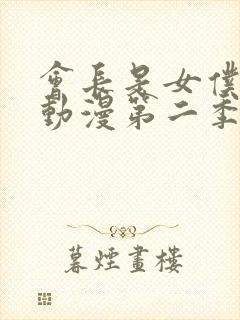 會長是女僕
動漫第二季
暮煙畫樓